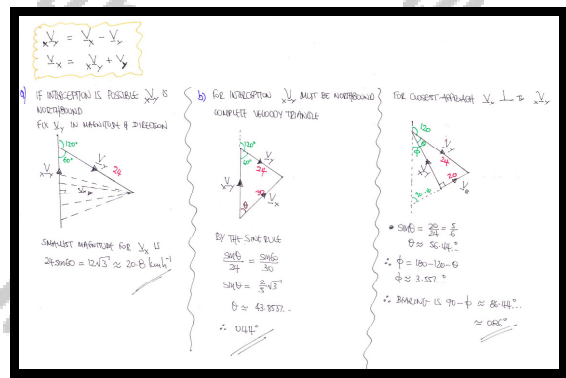 ₓV̲ᵧ = V̲ₓ − V̲ᵧ
V̲ₓ = ₓV̲ᵧ + V̲ᵧ
a) IF INTERCEPTION IS POSSIBLE ₓV̲ᵧ IS
NORTHBOUND
FIX V̲ᵧ IN MAGNITUDE & DIRECTION
120°
60°
V̲ᵧ
24
ₓV̲ᵧ
SMALLEST MAGNITUDE FOR V̲ₓ IS
24sin60 = 12√3 ≈ 20.8 kmh⁻¹
b) FOR INTERCEPTION ₓV̲ᵧ MUST BE NORTHBOUND
COMPLETE VELOCITY TRIANGLE
120°
60°
V̲ᵧ
24
ₓV̲ᵧ
30
V̲ₓ
θ
BY THE SINE RULE
sinθ/24 = sin60/30
sinθ = 2/5 √3
θ ≈ 43.8537...
∴ 044°
FOR CLOSEST APPROACH V̲ₓ ⊥ TO ₓV̲ᵧ
120
ϕ
θ
V̲ᵧ
24
ₓV̲ᵧ
20
V̲ₓ
90-ϕ
• sinθ = 20/24 = 5/6
θ ≈ 56.44..°
∴ ϕ = 180-120-θ
ϕ ≈ 3.557..°
∴ BEARING IS 90-ϕ ≈ 86.44°...
≈ 086°